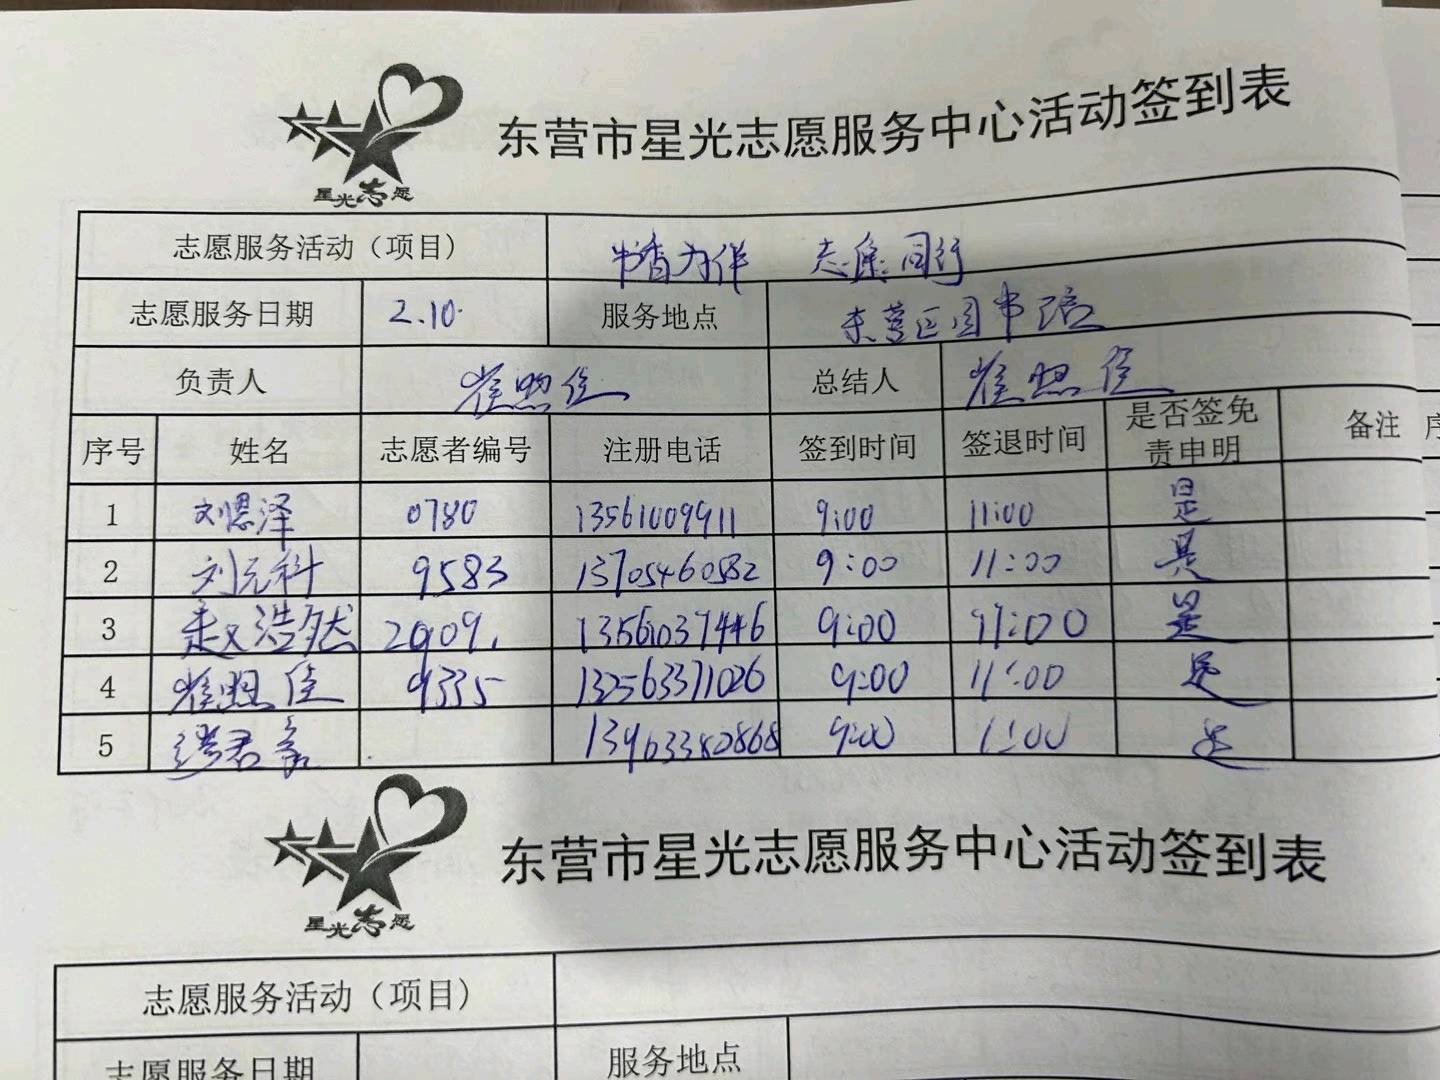 东营市星光志愿服务中心活动签到表
星光志愿
志愿服务活动（项目） 书香为伴 志愿同行
志愿服务日期 2.10 服务地点 东营区图书馆
负责人 崔照佳 总结人 崔照佳
序号 姓名 志愿者编号 注册电话 签到时间 签退时间 是否签免责申明 备注 序
1 刘恩泽 0780 13561009911 9:00 11:00 是
2 刘元科 9583 13705460582 9:00 11:00 是
3 浩然 13561037446 9:00 11:00 是
4 崔照佳 9335 132563371026 9:00 11:00 是
5 9:00 11:00 是
东营市星光志愿服务中心活动签到表
星光志愿
志愿服务活动（项目）
志愿服务日期 服务地点